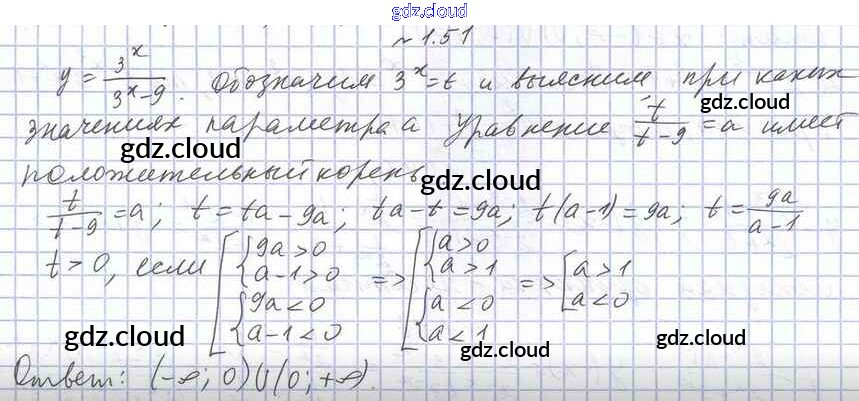 gdz.cloud
~ 1.51
y = 3^x / (3^x - 9). Обозначим 3^x = t и выясним при каких
gdz.cloud
значениях параметра a уравнение t / (t - 9) = a имеет
gdz.cloud
положительный корень
gdz.cloud
t / (t - 9) = a; t = ta - 9a; ta - t = 9a; t(a - 1) = 9a; t = 9a / (a - 1)
t > 0, если [ { 9a > 0 { a - 1 > 0 { 9a < 0 { a - 1 < 0 => [ { a > 0 { a > 1 { a < 0 { a < 1 => [ a > 1 a < 0
gdz.cloud gdz.cloud gdz.cloud
Ответ: (-∞; 0) U (0; +∞).